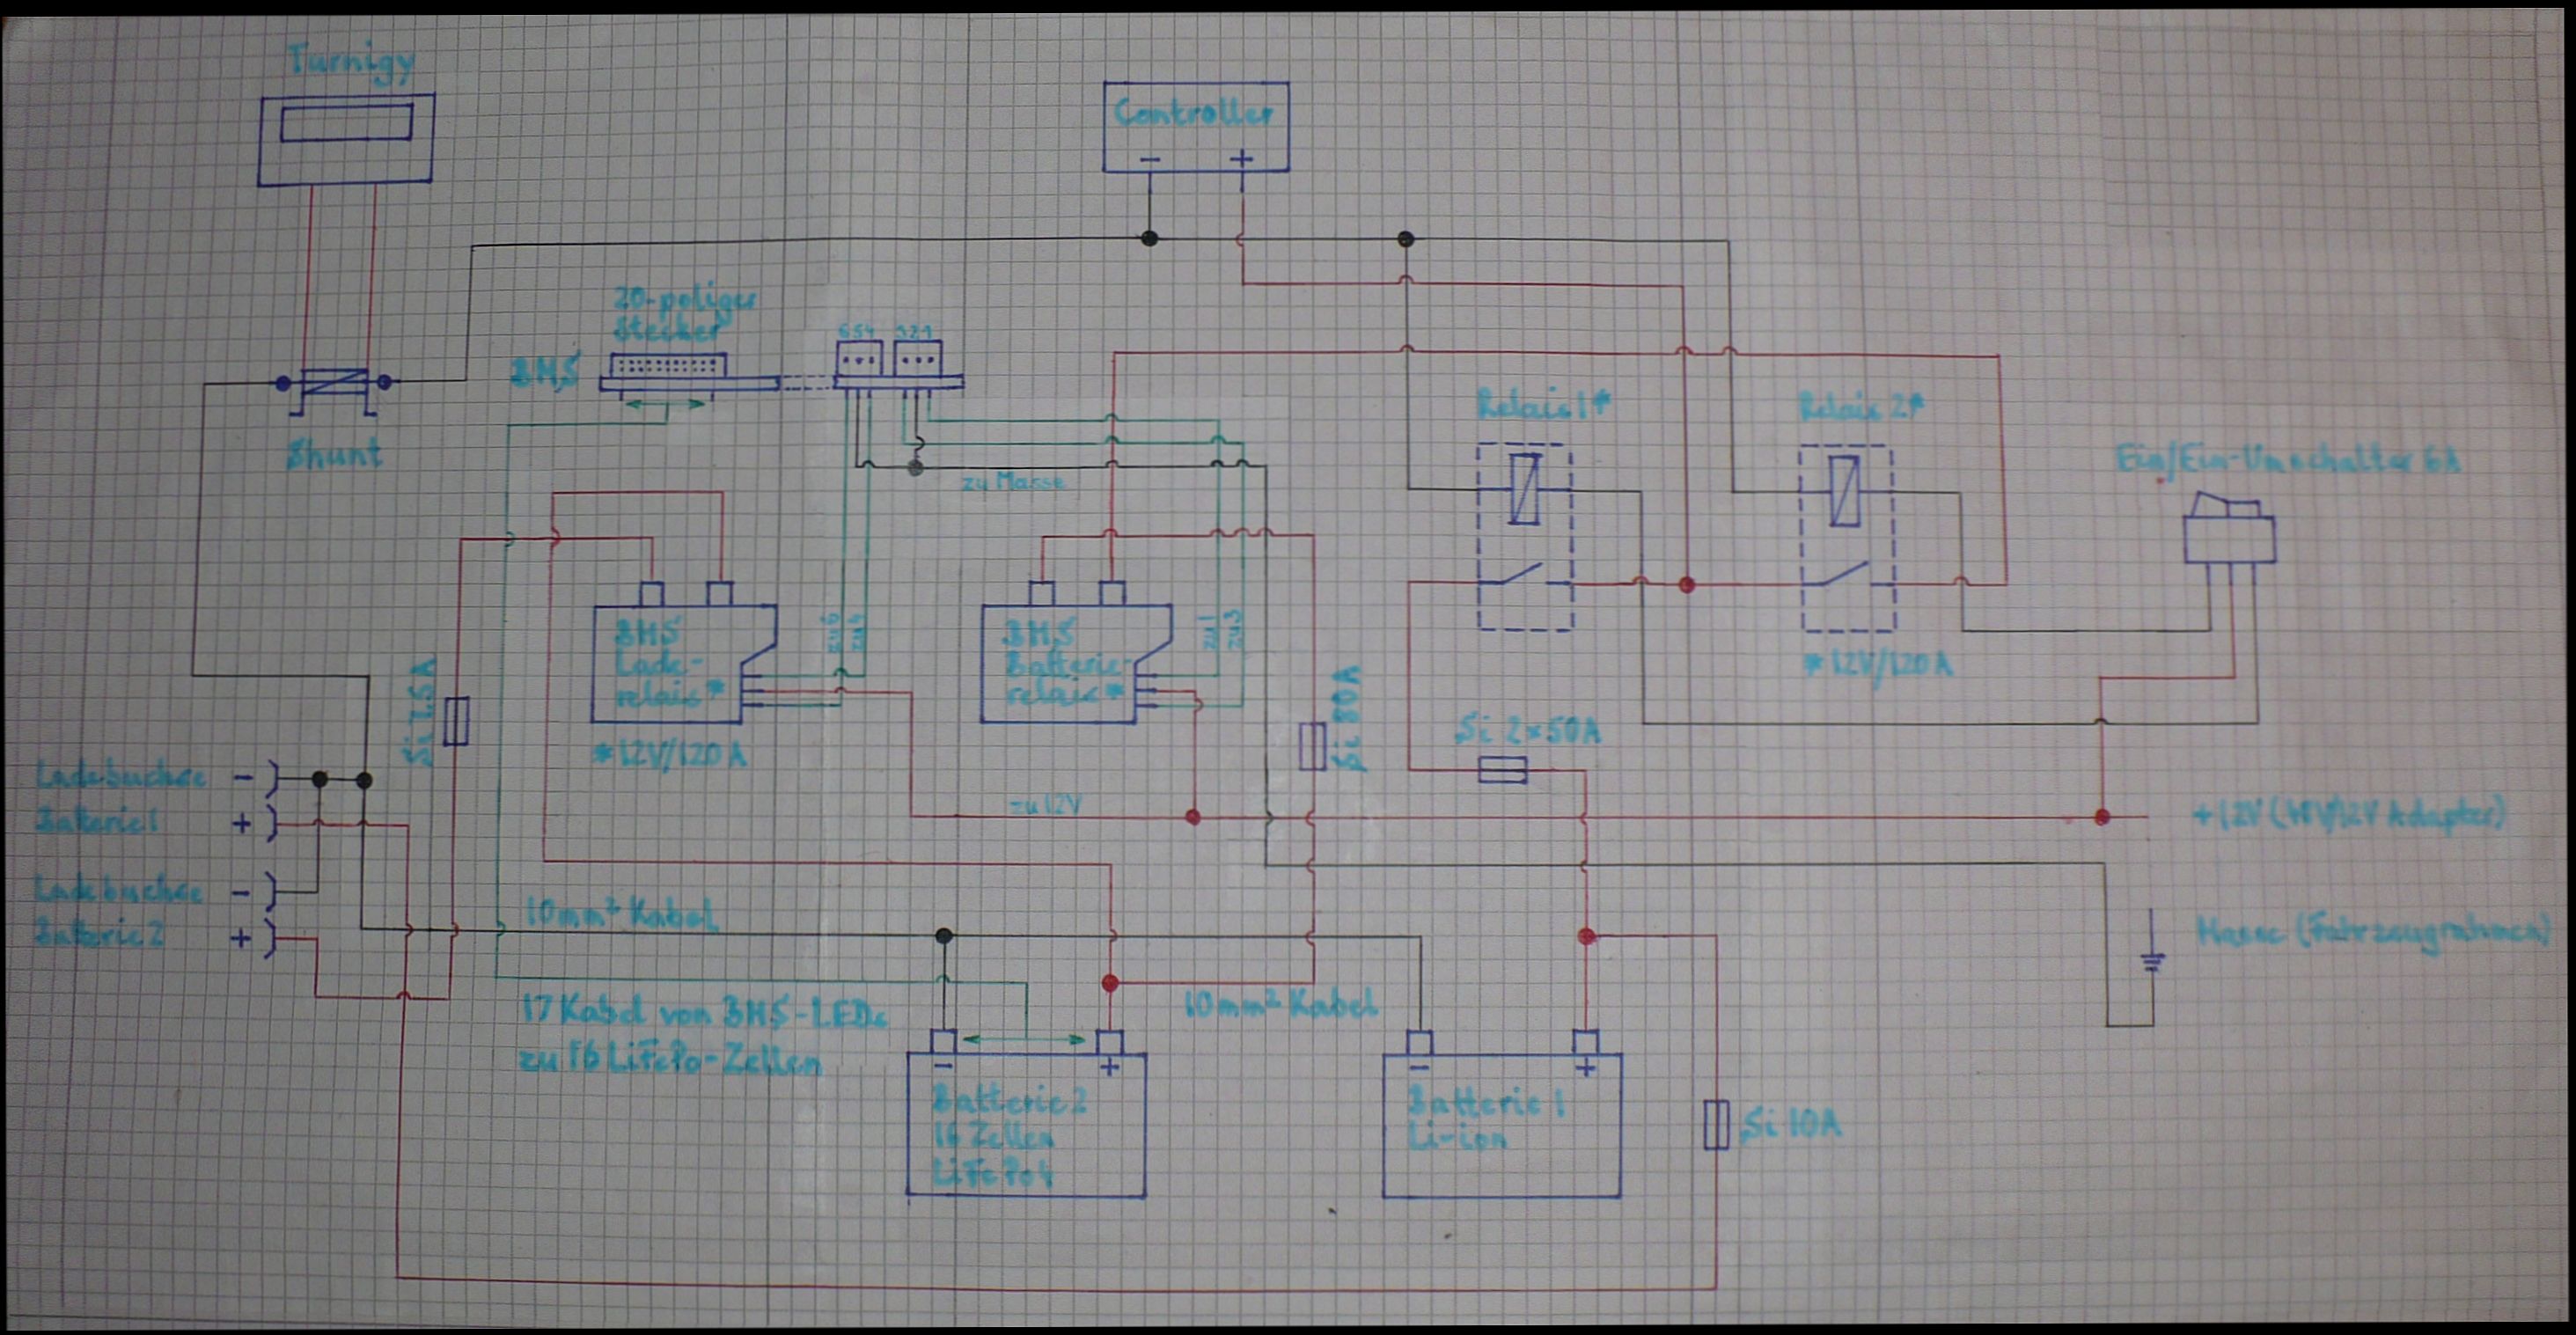 Turnigy
Controller
- +
20-poliger
Stecker
BMS
654 321
Shunt
zu Masse
Relais 1*
Relais 2*
Ein/Ein-Umschalter 6A
BMS
Lade-
relais*
zu 6
zu 4
*12V/120A
BMS
Batterie-
relais*
zu 1
zu 3
*12V/120A
Si 80A
Si 2x50A
Ladebuchse -
Batterie 1 +
zu 12V
+12V (48V/12V Adapter)
Ladebuchse -
Batterie 2 +
10mm² Kabel
Masse (Fahrzeugrahmen)
17 Kabel von BMS-LEDs
zu 16 LiFePo-Zellen
10mm² Kabel
- +
Batterie 2
16 Zellen
LiFePo4
- +
Batterie 1
Li-ion
Si 10A